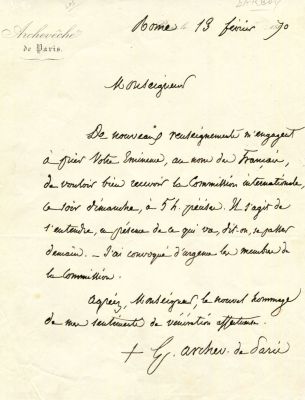 DARBOY
Archevêché
de Paris.
Rome, le 13 février 1870
Monseigneur
De nouveaux renseignements m'engagent
à prier Votre Eminence, au nom des Français,
de vouloir bien recevoir la Commission internationale,
ce soir dimanche, à 5 h. précises. Il s'agit de
s'entendre, en présence de ce qui va, dit-on, se passer
demain. – J'ai convoqué d'urgence les membres de
la Commission.
Agréez, Monseigneur, le nouvel hommage
de mes sentiments de vénération affectueuse.
+ G. archev. de Paris